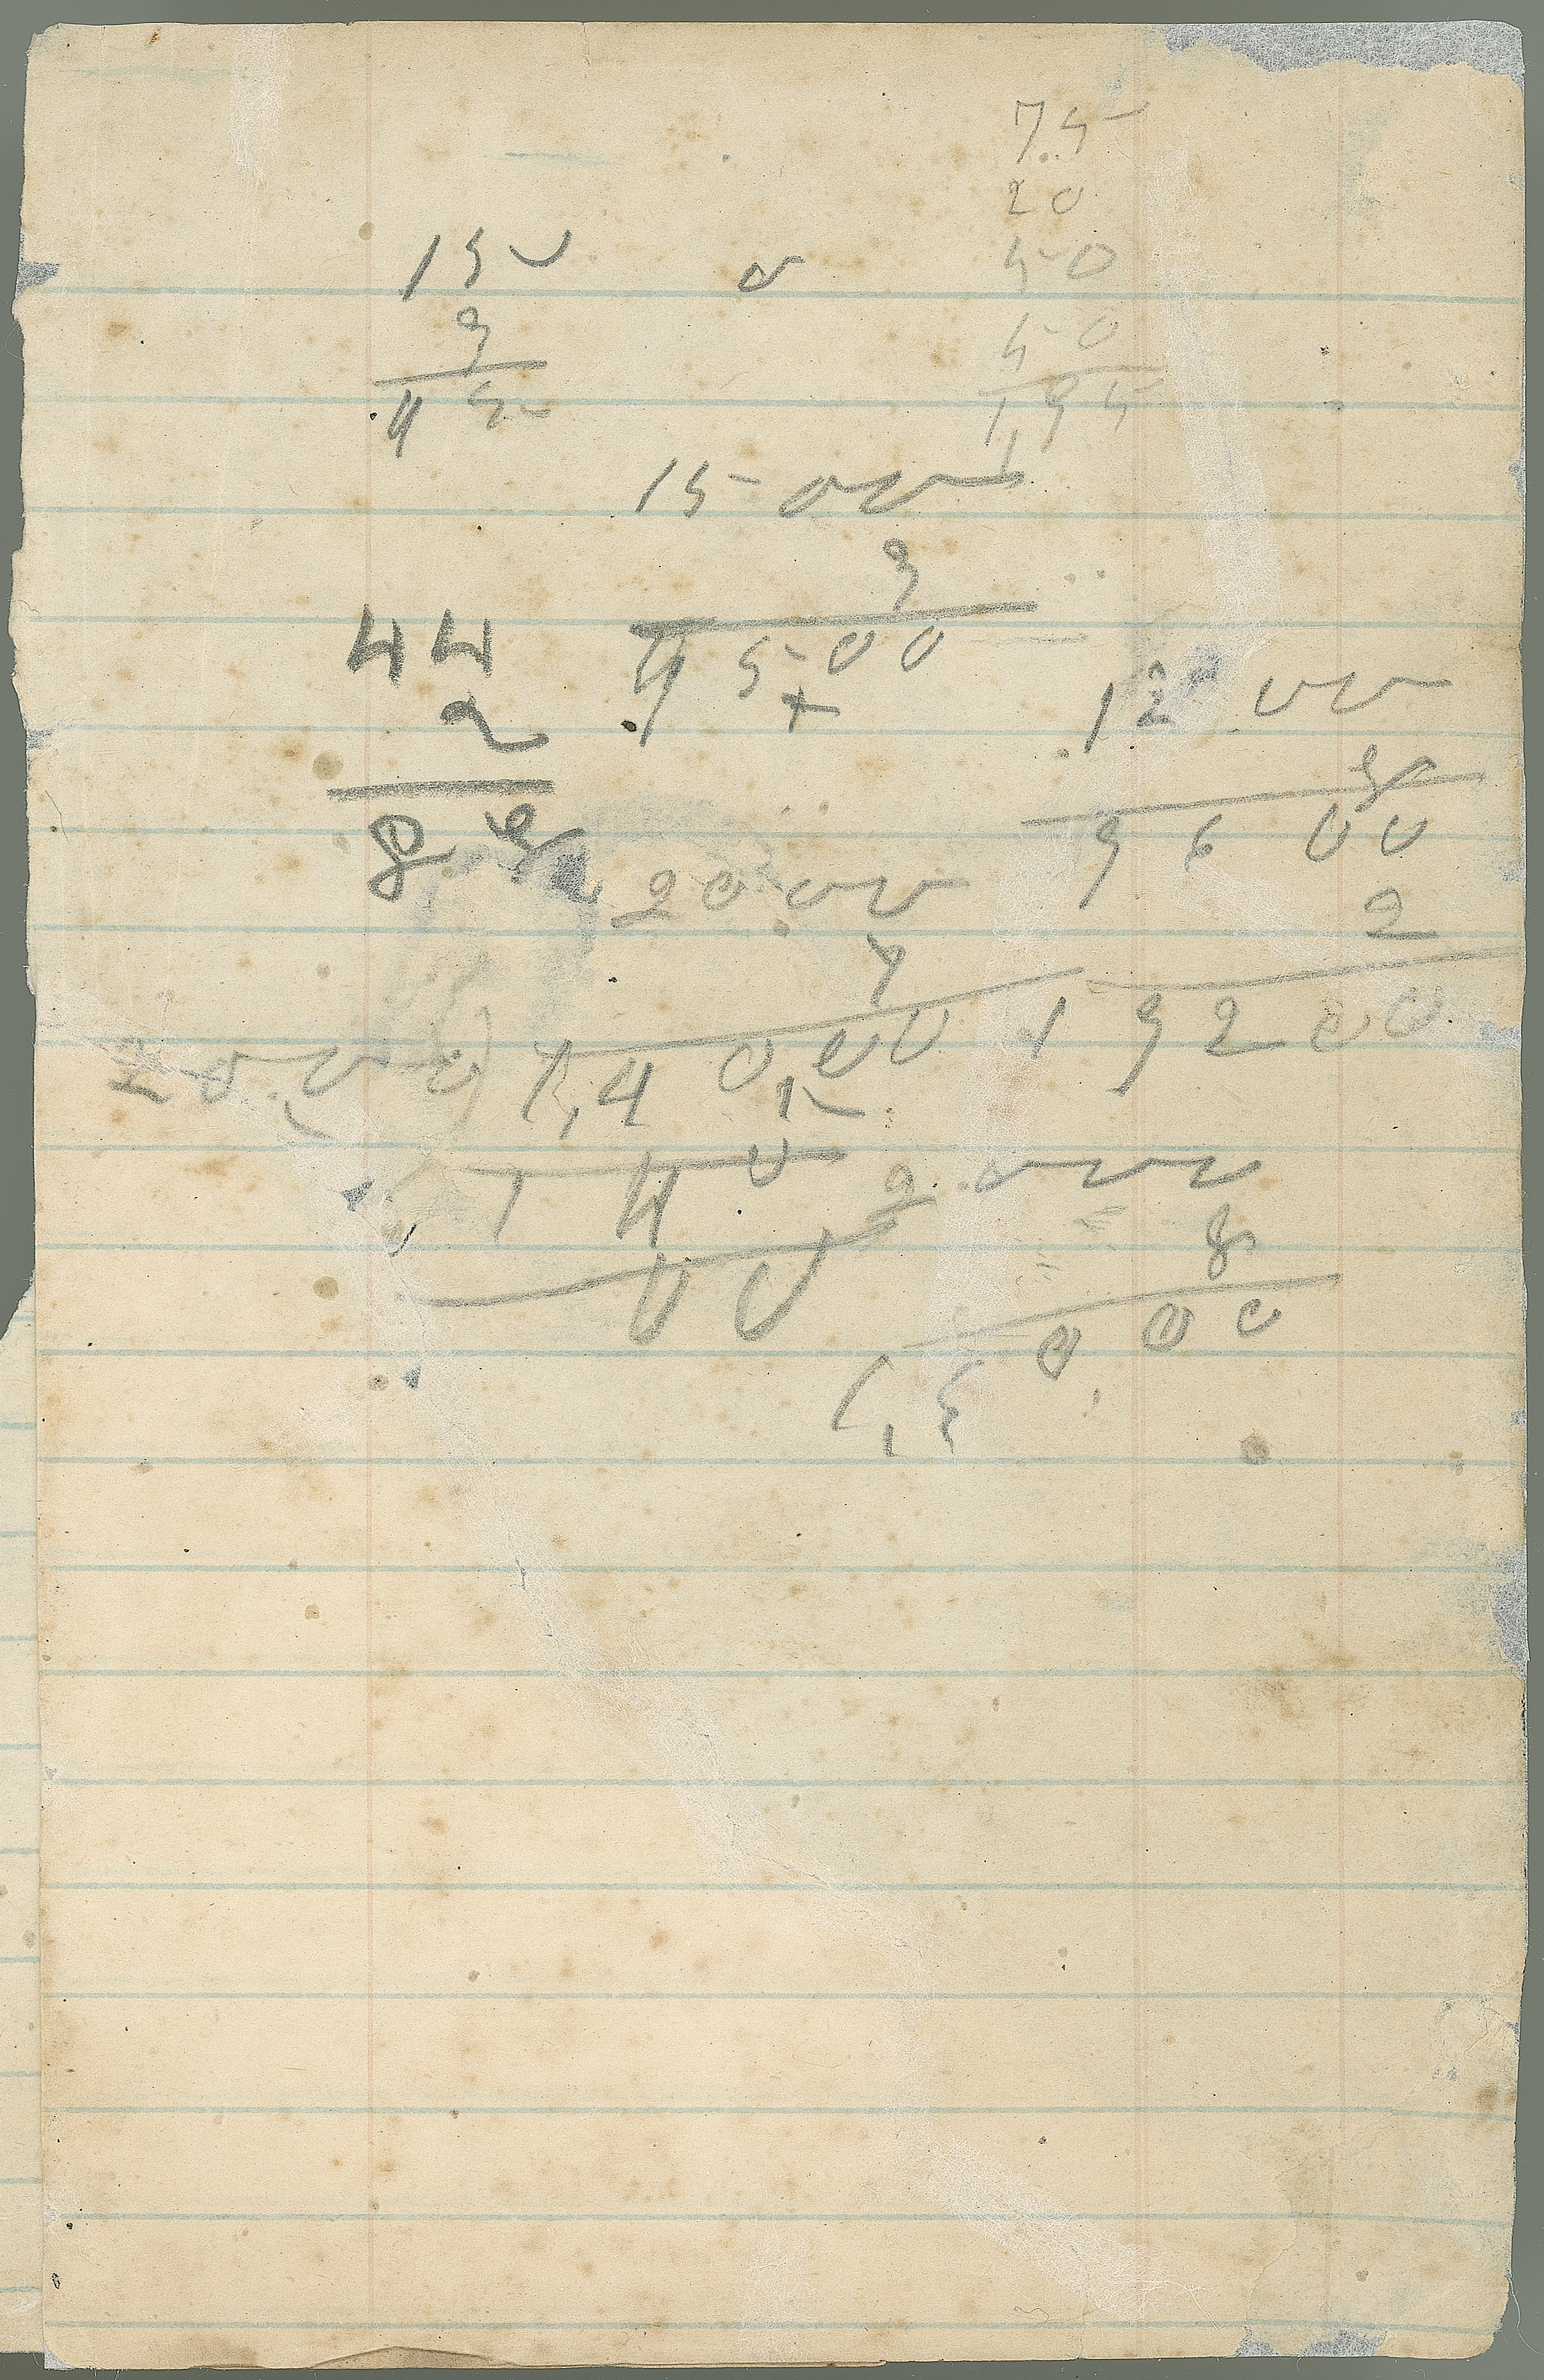 75
20
50
50
195
150
3
45
0
1500
3
4500
44
2
88
1200
8
9600
2
19200
2000
7
2000) 14000
140
00
2000
8